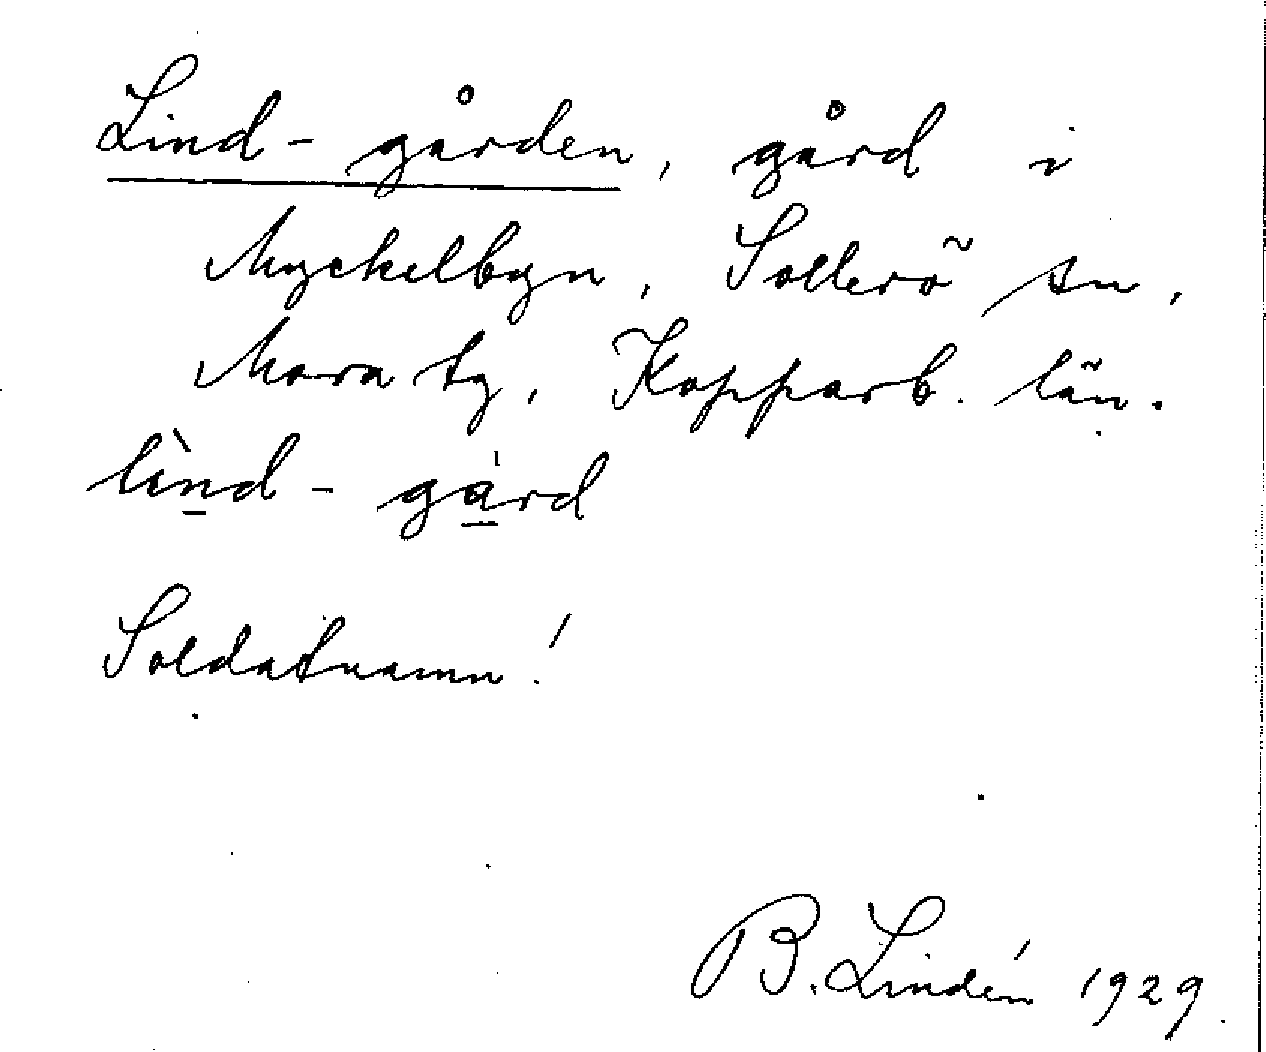 Lind-gården, gård i
Myckelbyn, Sollerö sn,
Mora tg, Kopparb. län.
lìnd-gárd
Soldatnamn!
B. Lindén 1929.